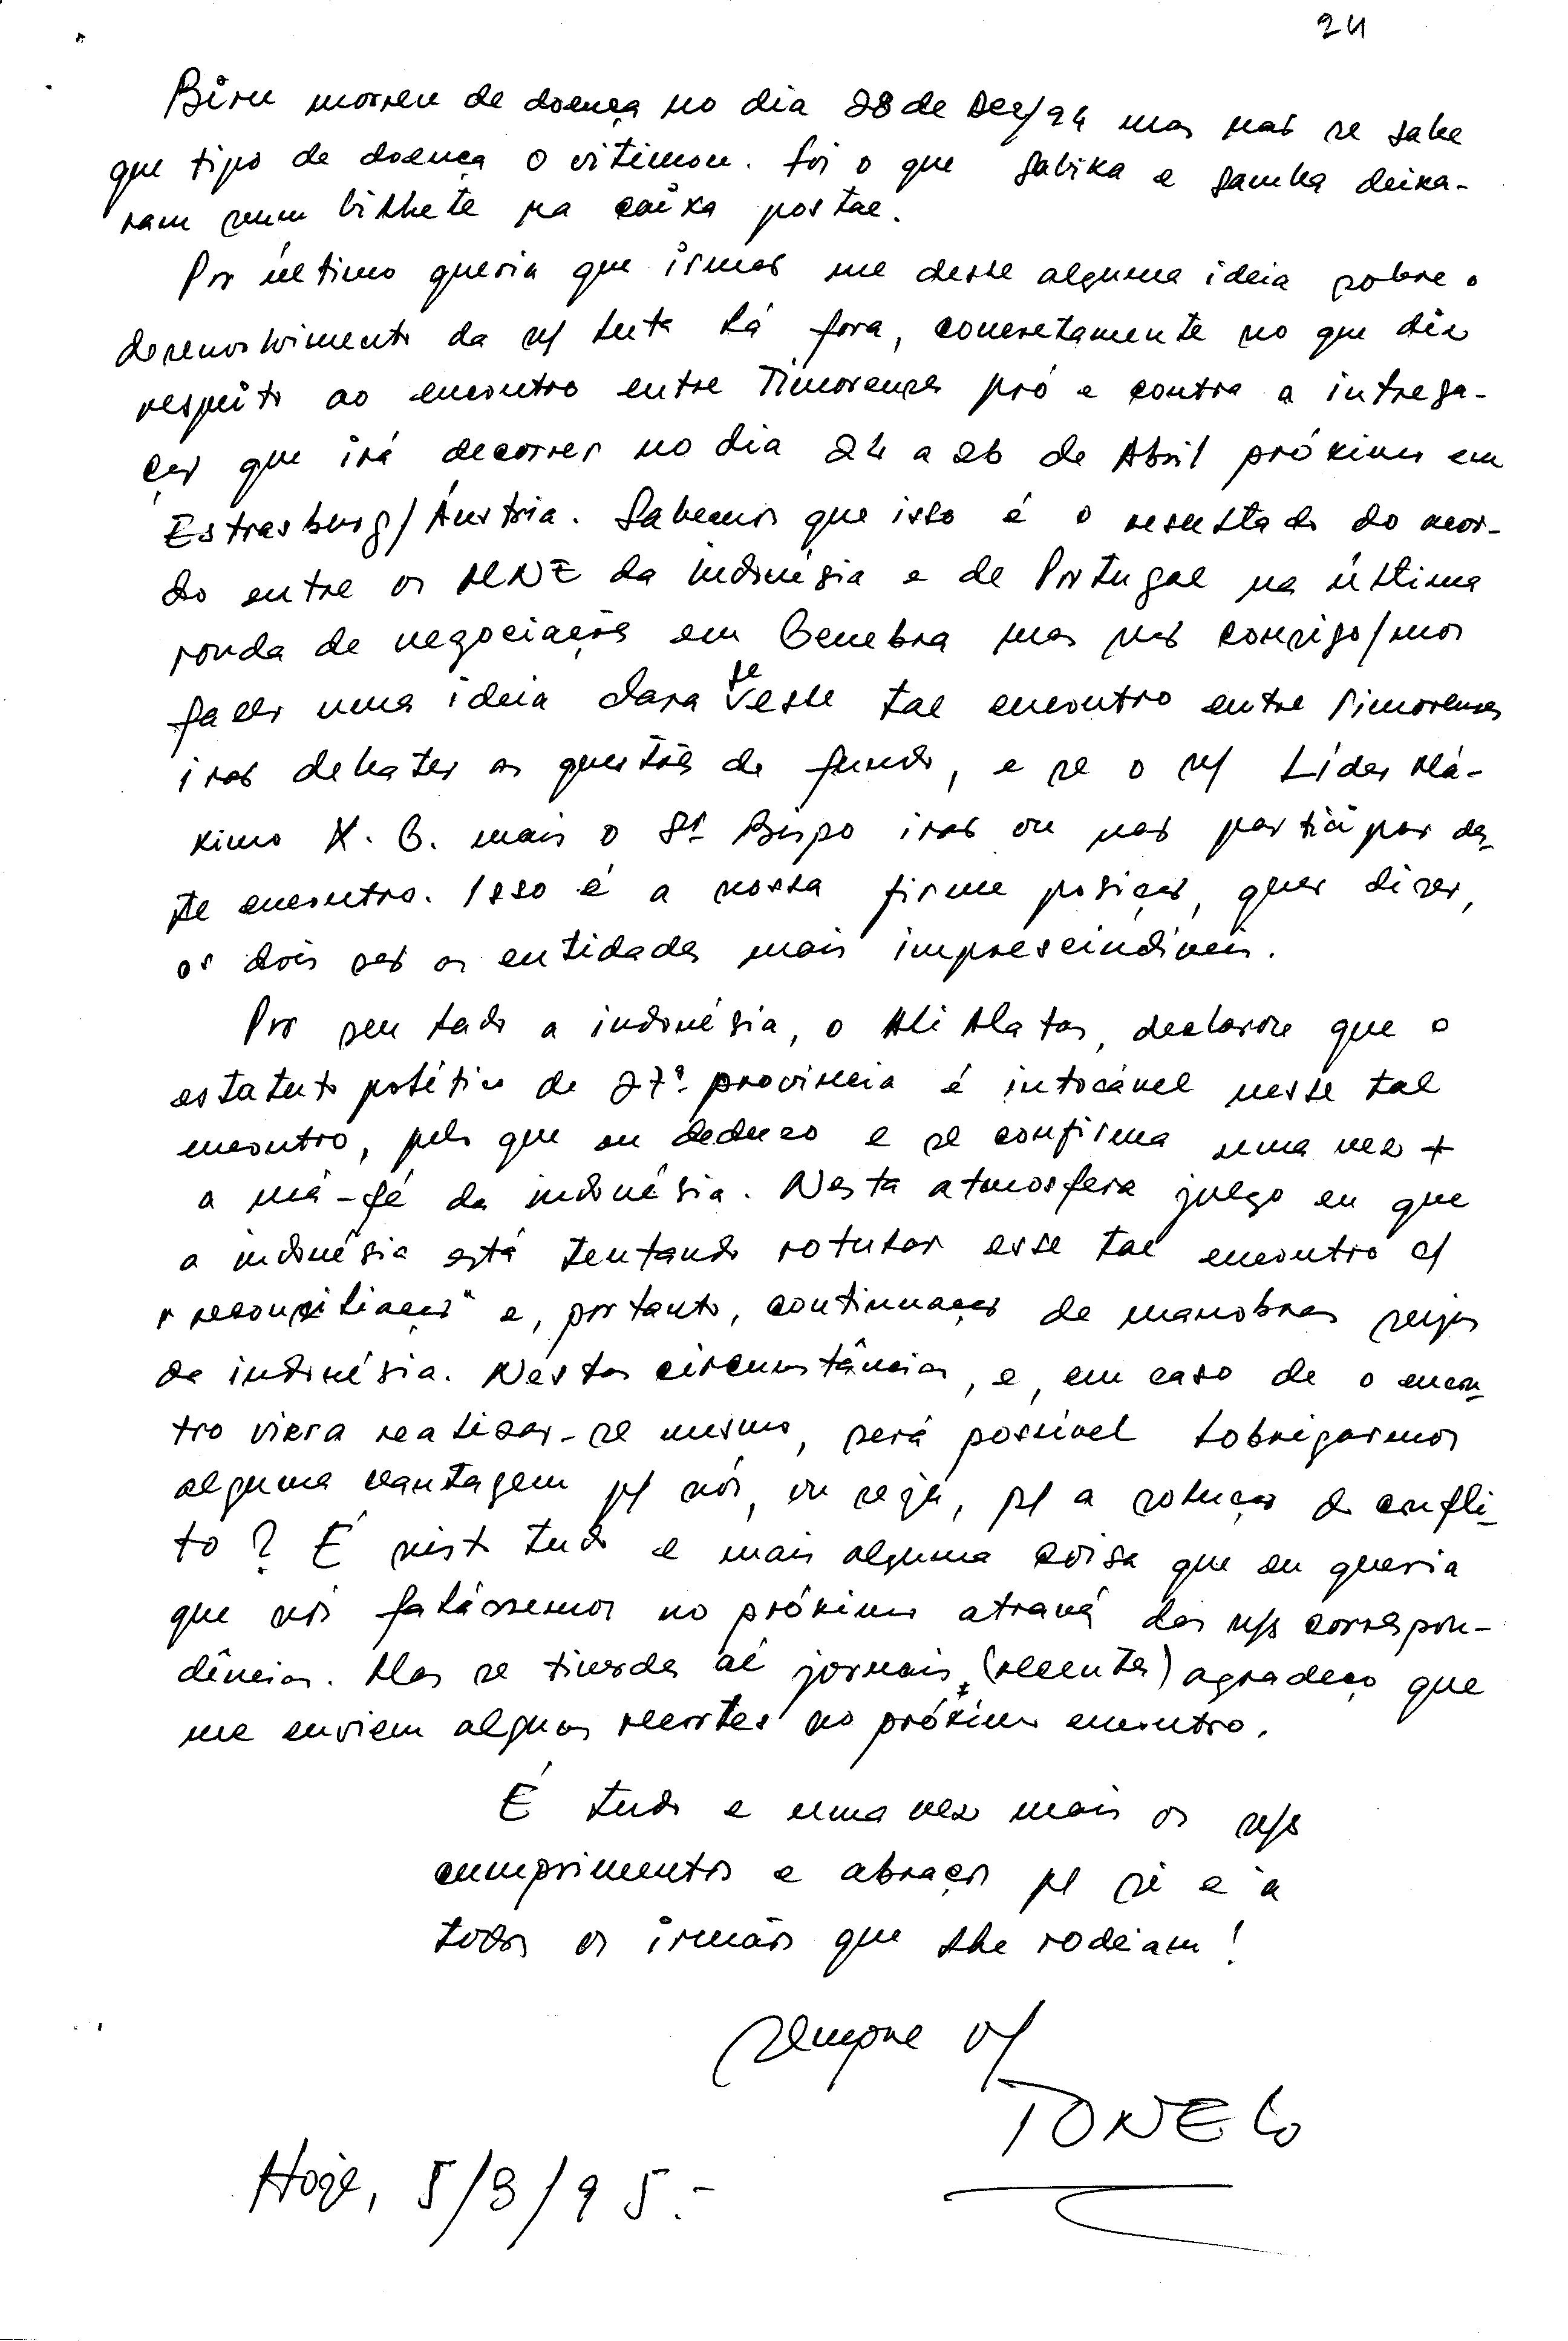 24
Biru morreu de doença no dia 28 de Dez/94 mas não se sabe
que tipo de doença o vitimou. Foi o que Sabika e Samba deixa-
ram num bilhete na caixa postal.
Por último queria que irmão me desse alguma ideia sobre o
desenvolvimento da n/ luta lá fora, concretamente no que diz
respeito ao encontro entre Timorenses pró e contra a intrega-
ção que irá decorrer no dia 24 a 26 de Abril próximo em
Estrasburg/Áustria. Sabemos que isso é o resultado do acor-
do entre os MNE da indonésia e de Portugal na última
ronda de negociações em Genebra mas não consigo/mos
fazer uma ideia clara se nesse tal encontro entre Timorenses
irão debater as questões de fundo, e se o n/ Líder Má-
ximo X. G. mais o Sr. Bispo irão ou não participar des-
te encontro. Isso é a nossa firme posição, quer dizer,
os dois são as entidades mais imprescindíveis.
Por seu lado a indonésia, o Ali Alatas, declarou que o
estatuto político de 27ª província é intocável nesse tal
encontro, pelo que eu deduzo e se confirma uma vez +
a má-fé da indonésia. Nesta atmosfera julgo eu que
a indonésia está tentando rotular esse tal encontro c/
"reconciliação" e, portanto, continuação de manobras sujas
da indonésia. Nestas circunstâncias, e, em caso de o encon-
tro viera realizar-se mesmo, será possível lobrigarmos
alguma vantagem p/ nós, ou seja, p/ a solução do confli-
to? É nisto tudo e mais alguma coisa que eu queria
que nós falássemos no próximo através das n/s correspon-
dências. Mas se tiverdes aí jornais (recentes) agradeço que
me enviem alguns recortes no próximo encontro.
É tudo e uma vez mais os n/s
cumprimentos e abraços p/ si e a
todos os irmãos que lhe rodeiam!
Sempre v/
TONELO
Hoje, 5/3/95.-